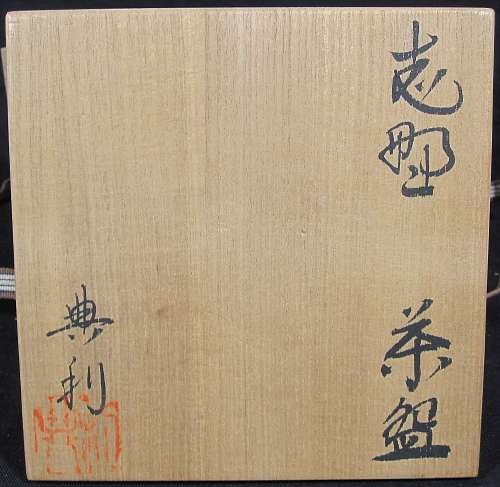 志野 茶盌
典利